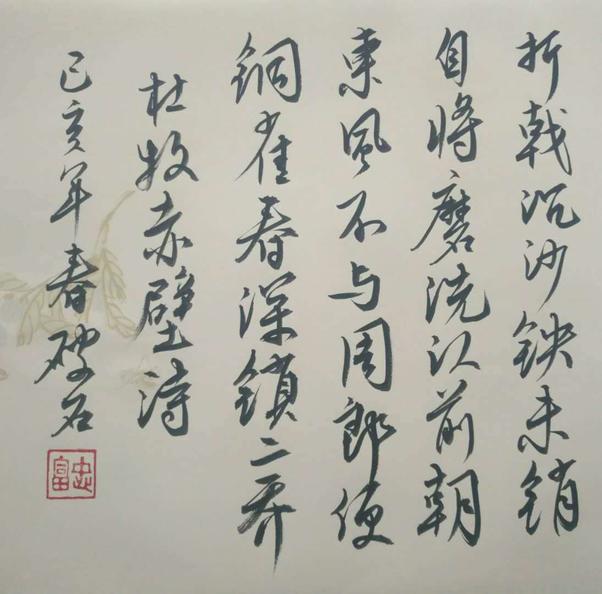 折戟沉沙铁未销
自将磨洗认前朝
東風不与周郎便
铜雀春深锁二乔
杜牧赤壁诗
己亥年春破石
忠富